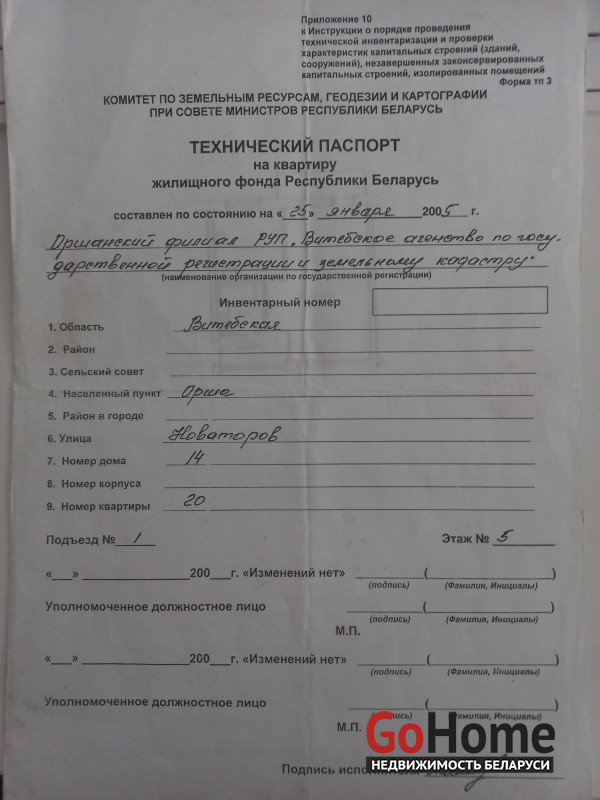 Приложение 10
к Инструкции о порядке проведения
технической инвентаризации и проверки
характеристик капитальных строений (зданий,
сооружений), незавершенных законсервированных
капитальных строений, изолированных помещений
Форма тп 3
КОМИТЕТ ПО ЗЕМЕЛЬНЫМ РЕСУРСАМ, ГЕОДЕЗИИ И КАРТОГРАФИИ
ПРИ СОВЕТЕ МИНИСТРОВ РЕСПУБЛИКИ БЕЛАРУСЬ
ТЕХНИЧЕСКИЙ ПАСПОРТ
на квартиру
жилищного фонда Республики Беларусь
составлен по состоянию на «25» января 2005 г.
Оршанский филиал РУП „Витебское агенство по госу-
дарственной регистрации и земельному кадастру"
(наименование организации по государственной регистрации)
Инвентарный номер
1. Область Витебская
2. Район
3. Сельский совет
4. Населенный пункт Орша
5. Район в городе
6. Улица Новаторов
7. Номер дома 14
8. Номер корпуса
9. Номер квартиры 20
Подъезд № 1 Этаж № 5
«___» ________________200___г. «Изменений нет» __________(__________________)
(подпись) (Фамилия, Инициалы)
Уполномоченное должностное лицо __________(__________________)
(подпись) (Фамилия, Инициалы)
М.П.
«___» ________________200___г. «Изменений нет» __________(__________________)
(подпись) (Фамилия, Инициалы)
Уполномоченное должностное лицо __________(__________________)
(подпись) (Фамилия, Инициалы)
М.П.
GoHome
НЕДВИЖИМОСТЬ БЕЛАРУСИ
Подпись исполнителя